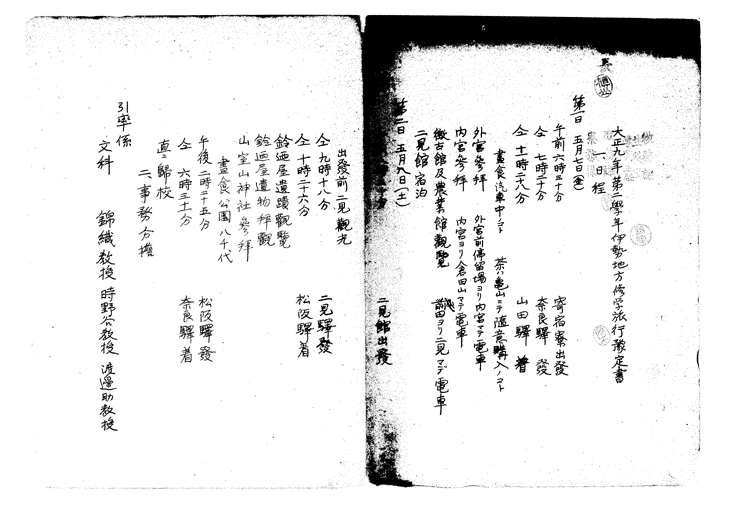 大正九年第二學年伊勢地方修学旅行豫定書
一、日程
第一日 五月七日(金)
午前六時三十分 寄宿寮出發
仝 七時三十分 奈良驛 發
仝 十一時二十八分 山田驛 着
晝食汽車中ノコト 茶ハ亀山ニテ随意購入ノコト
外宮参拜 外宮前停留場ヨリ内宮マデ電車
内宮参拜 内宮ヨリ倉田山マデ電車
徴古館及農業館觀覽 ヨリ二見マデ電車
二見館宿泊
第二日 五月八日(土)
二見館出發
出發前二見觀光
仝九時十八分 二見驛發
仝十時二十六分 松阪驛着
鈴迺屋遺蹟觀覽
鈴迺屋遺物拜觀
山室山神社参拜
晝食公園八千代
午後二時二十五分 松阪驛發
仝 六時三十一分 奈良驛着
直ニ歸校
二、事務分擔
引率係
文科 錦織教授 時野谷教授 渡邊助教授